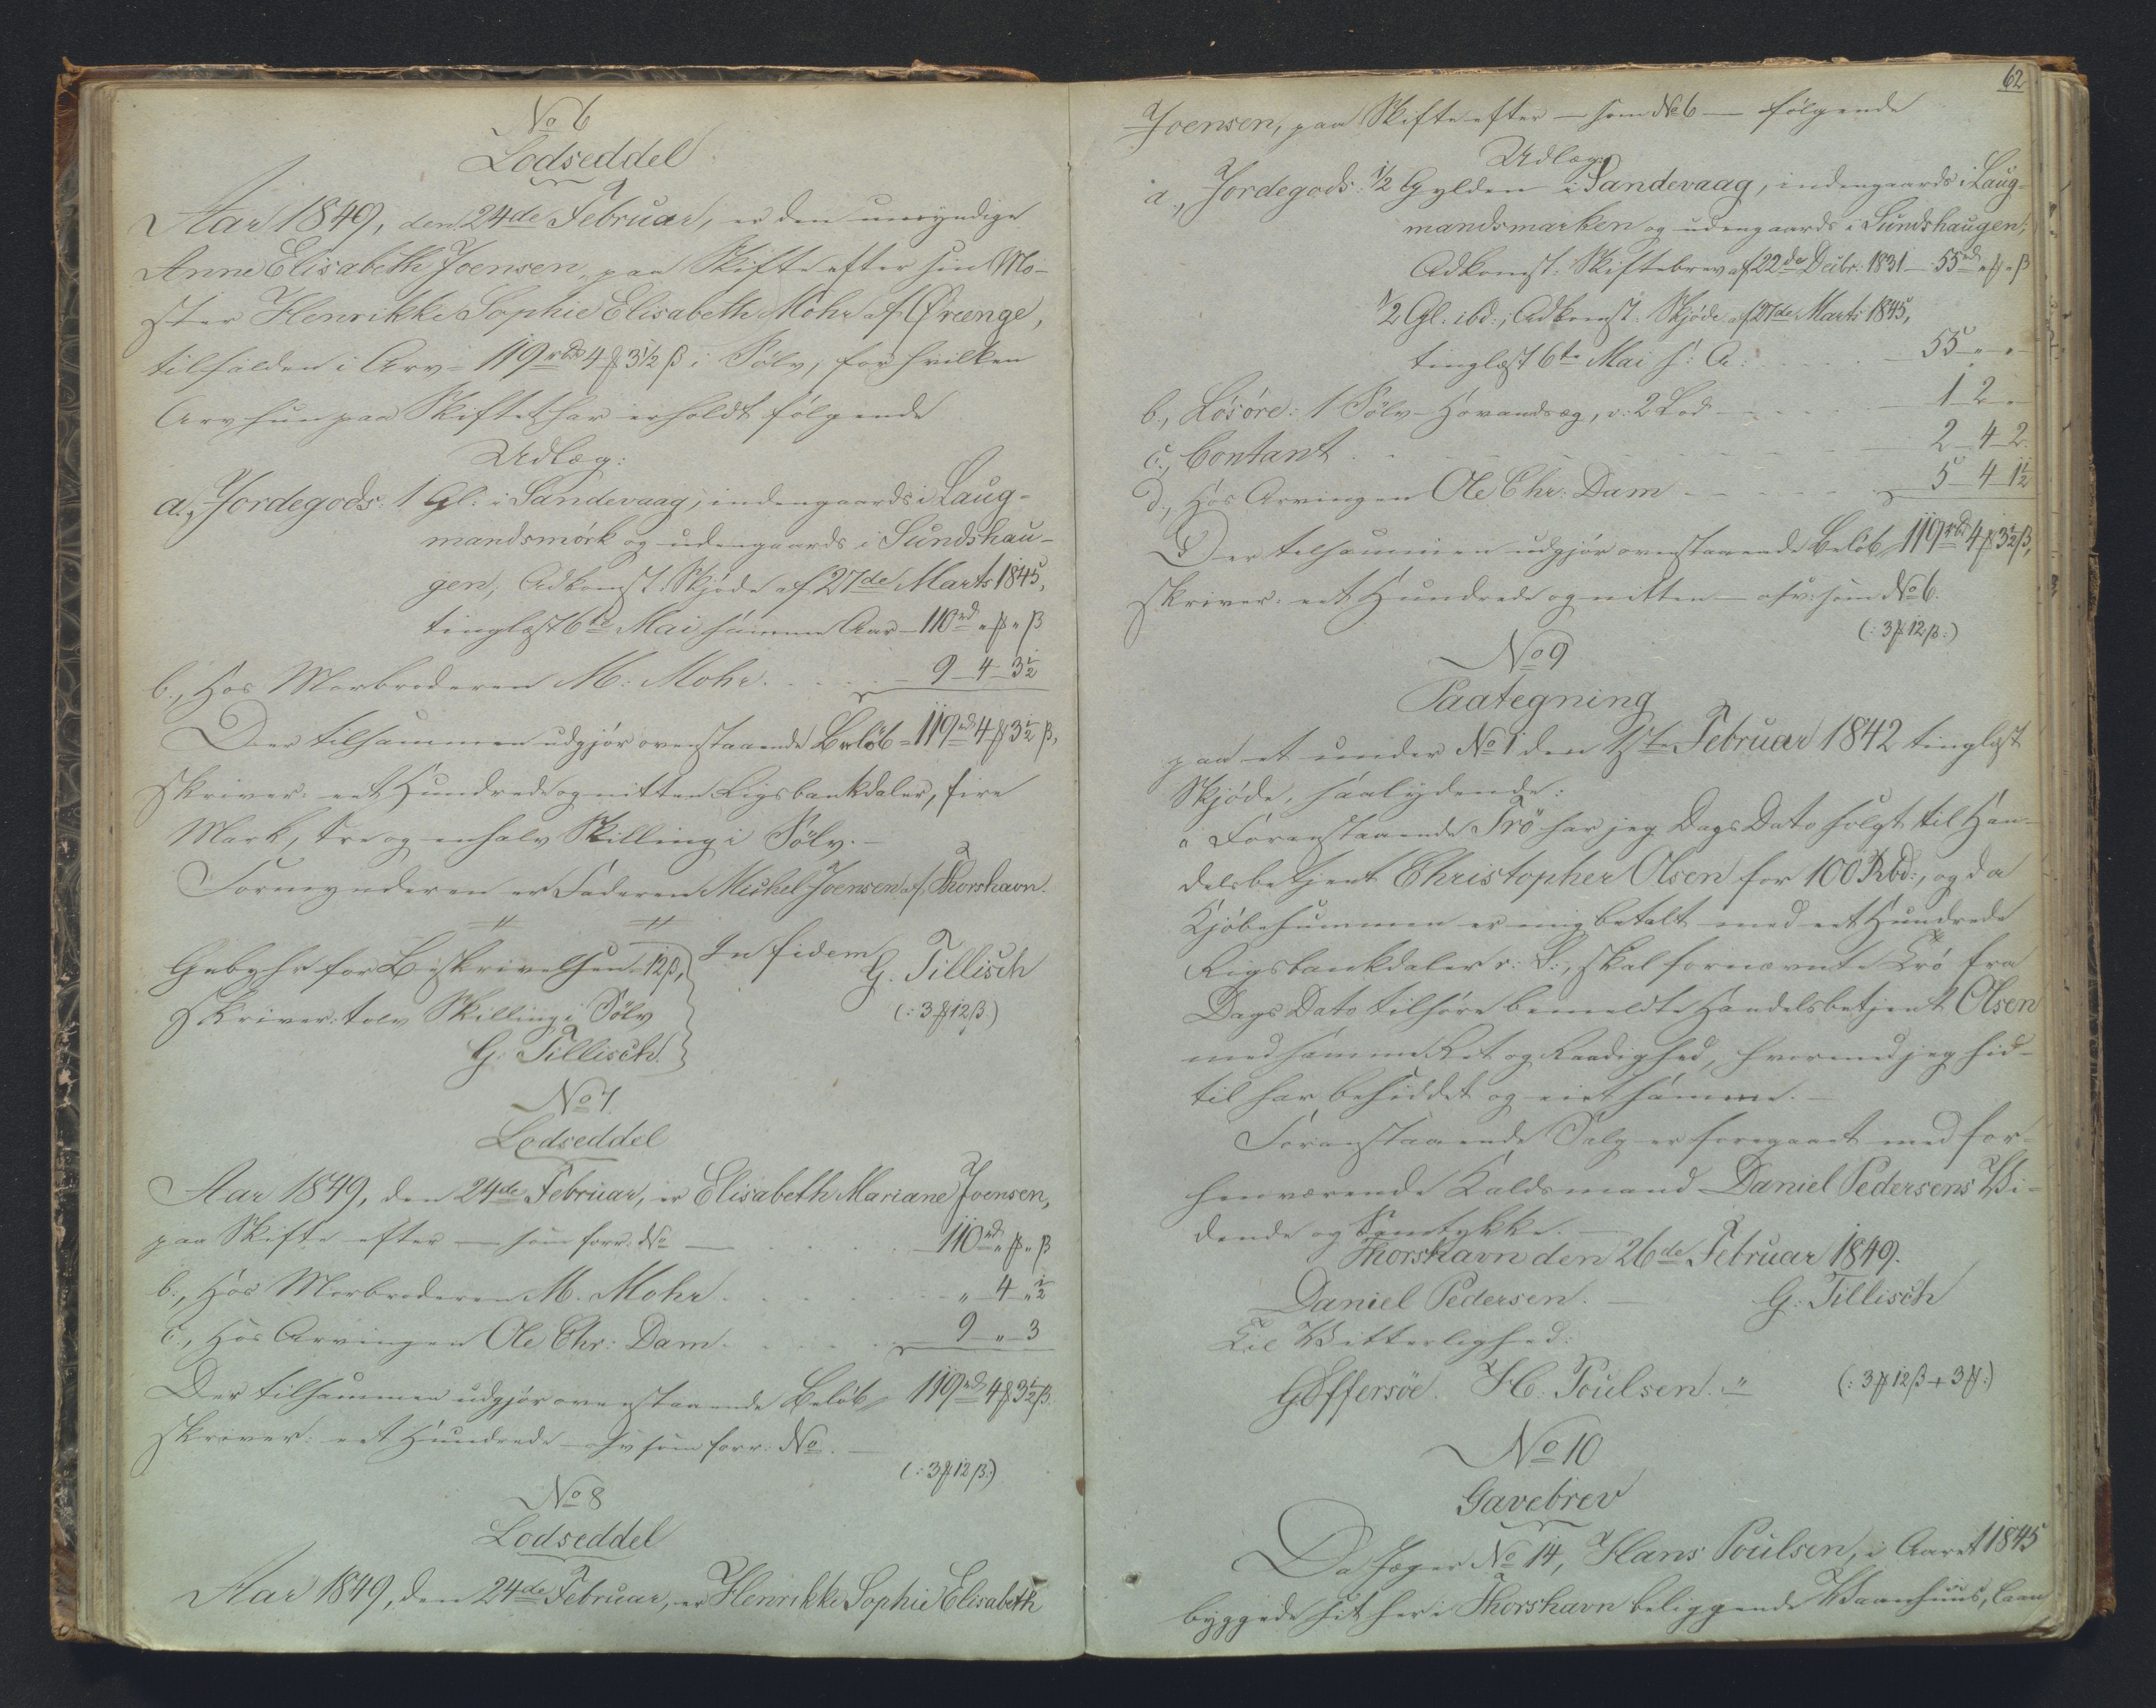 No 6
Lodseddel
Aar 1849, den 24de Februar, er den umyndige
Anne Elisabeth Joensen, paa Skifte efter sin Mo-
ster Henrikke Sophie Elisabeth Mohr af Qvænge,
tilfalden i Arv = 119 rbd 4 ₰ 3½ β i Sølv, for hvilken
Arv hun paa Skiftet har erholdt følgende
Udlæg:
a., Jordegods: 1 Gl: i Sandevaag, indengaards i Laug-
mandsmørk og udengaards i Sundshau-
gen, Adkomst: Skjøde af 27de Marts 1845,
tinglæst 6te Mai samme Aar – 110 rbd „ ₰ „ β
b., Hos Morbroderen M. Mohr. . . . . . – 9 – 4 – 3½
Der tilsammen udgjør ovenstaaende Beløb = 119 rbd 4 ₰ 3½ β,
skriver: eet Hundrede og nitten Rigsbankdaler, fire
Mark, tre og en halv Skilling i Sølv. –
Formynderen er Faderen Michel Joensen af Thorshavn.
Gebyhr for Beskrivelsen 12 β,
skriver: tolv Skilling i Sølv
G. Tillisch
In fidem
G. Tillisch
(: 3 ₰ 12 β)
No 7
Lodseddel
Aar 1849, den 24de Februar, er Elisabeth Mariane Joensen,
paa Skifte efter – som forr: No – . . . . . – 110 rbd „ ₰ „ β
b., Hos Morbroderen M. Mohr . . . . . . – „ – 4 – „½
c., Hos Arvingen Ole Chr: Dam . . . . . – 9 – „ – 3
Der tilsammen udgjør ovenstaaende Beløb 119 rbd 4 ₰ 3½ β
skriver: eet Hundrede – osv som forr: No. –
(: 3 ₰ 12 β:)
No 8
Lodseddel
Aar 1849, den 24de Februar, er Henrikke Sophie Elisabeth
62
Joensen, paa Skifte efter – som No 6 – følgende
Udlæg:
a., Jordegods: ½ Gylden i Sandevaag, indengaards i Laug-
mandsmarken og udengaards i Sundshaugen;
Adkomst: Skiftebrev af 22de Decbr: 1831 – 55 rbd „ ₰ „ β
½ Gl. ibd:, Adkomst: Skjøde af 27de Marts 1845,
tinglæst 6te Mai s: A: . . . . . – 55 „ „
b., Løsøre: 1 Sølv-Hovandsæg, v: 2 Lod – . . . . – 1 – 2 „
c., Contant . . . . . . . . – 2 – 4 – 2
d., Hos Arvingen Ole Chr: Dam – . . . . – 5 – 4 – 1½
Der tilsammen udgjør ovenstaaende Beløb 119 rbd 4 ₰ 3½ β,
skriver: eet Hundrede og nitten – osv: som No 6.
(: 3 ₰ 12 β:)
No 9
Paategning
paa et under No 1 den 1ste Februar 1842 tinglæst
Skjøde, saalydende:
„ Foranstaaende Trø har jeg Dags Dato solgt til Han-
delsbetjent Christopher Olsen for 100 Rbd:, og da
Kjøbesummen er mig betalt med eet Hundrede
Rigsbankdaler r: S:, skal fornævnte Trø fra
Dags Dato tilhøre bemeldte Handelsbetjent Olsen
med samme Ret og Raadighed, hvormed jeg hid-
til har besiddet og eiet samme. –
Foranstaaende Salg er foregaaet med for-
henværende Kaldsmand Daniel Pedersens Vi-
dende og Samtykke. –
Thorshavn den 26de Februar 1849.
Daniel Pedersen. – G. Tillisch
Til Vitterlighed:
G Effersøe. H C. Poulsen. „ (: 3 ₰ 12 β + 3 ₰:)
No 10
Gavebrev
Da Jæger No 14, Hans Poulsen, i Aaret 1845
byggede sit her i Thorshavn beliggende Vaanhuus, laan